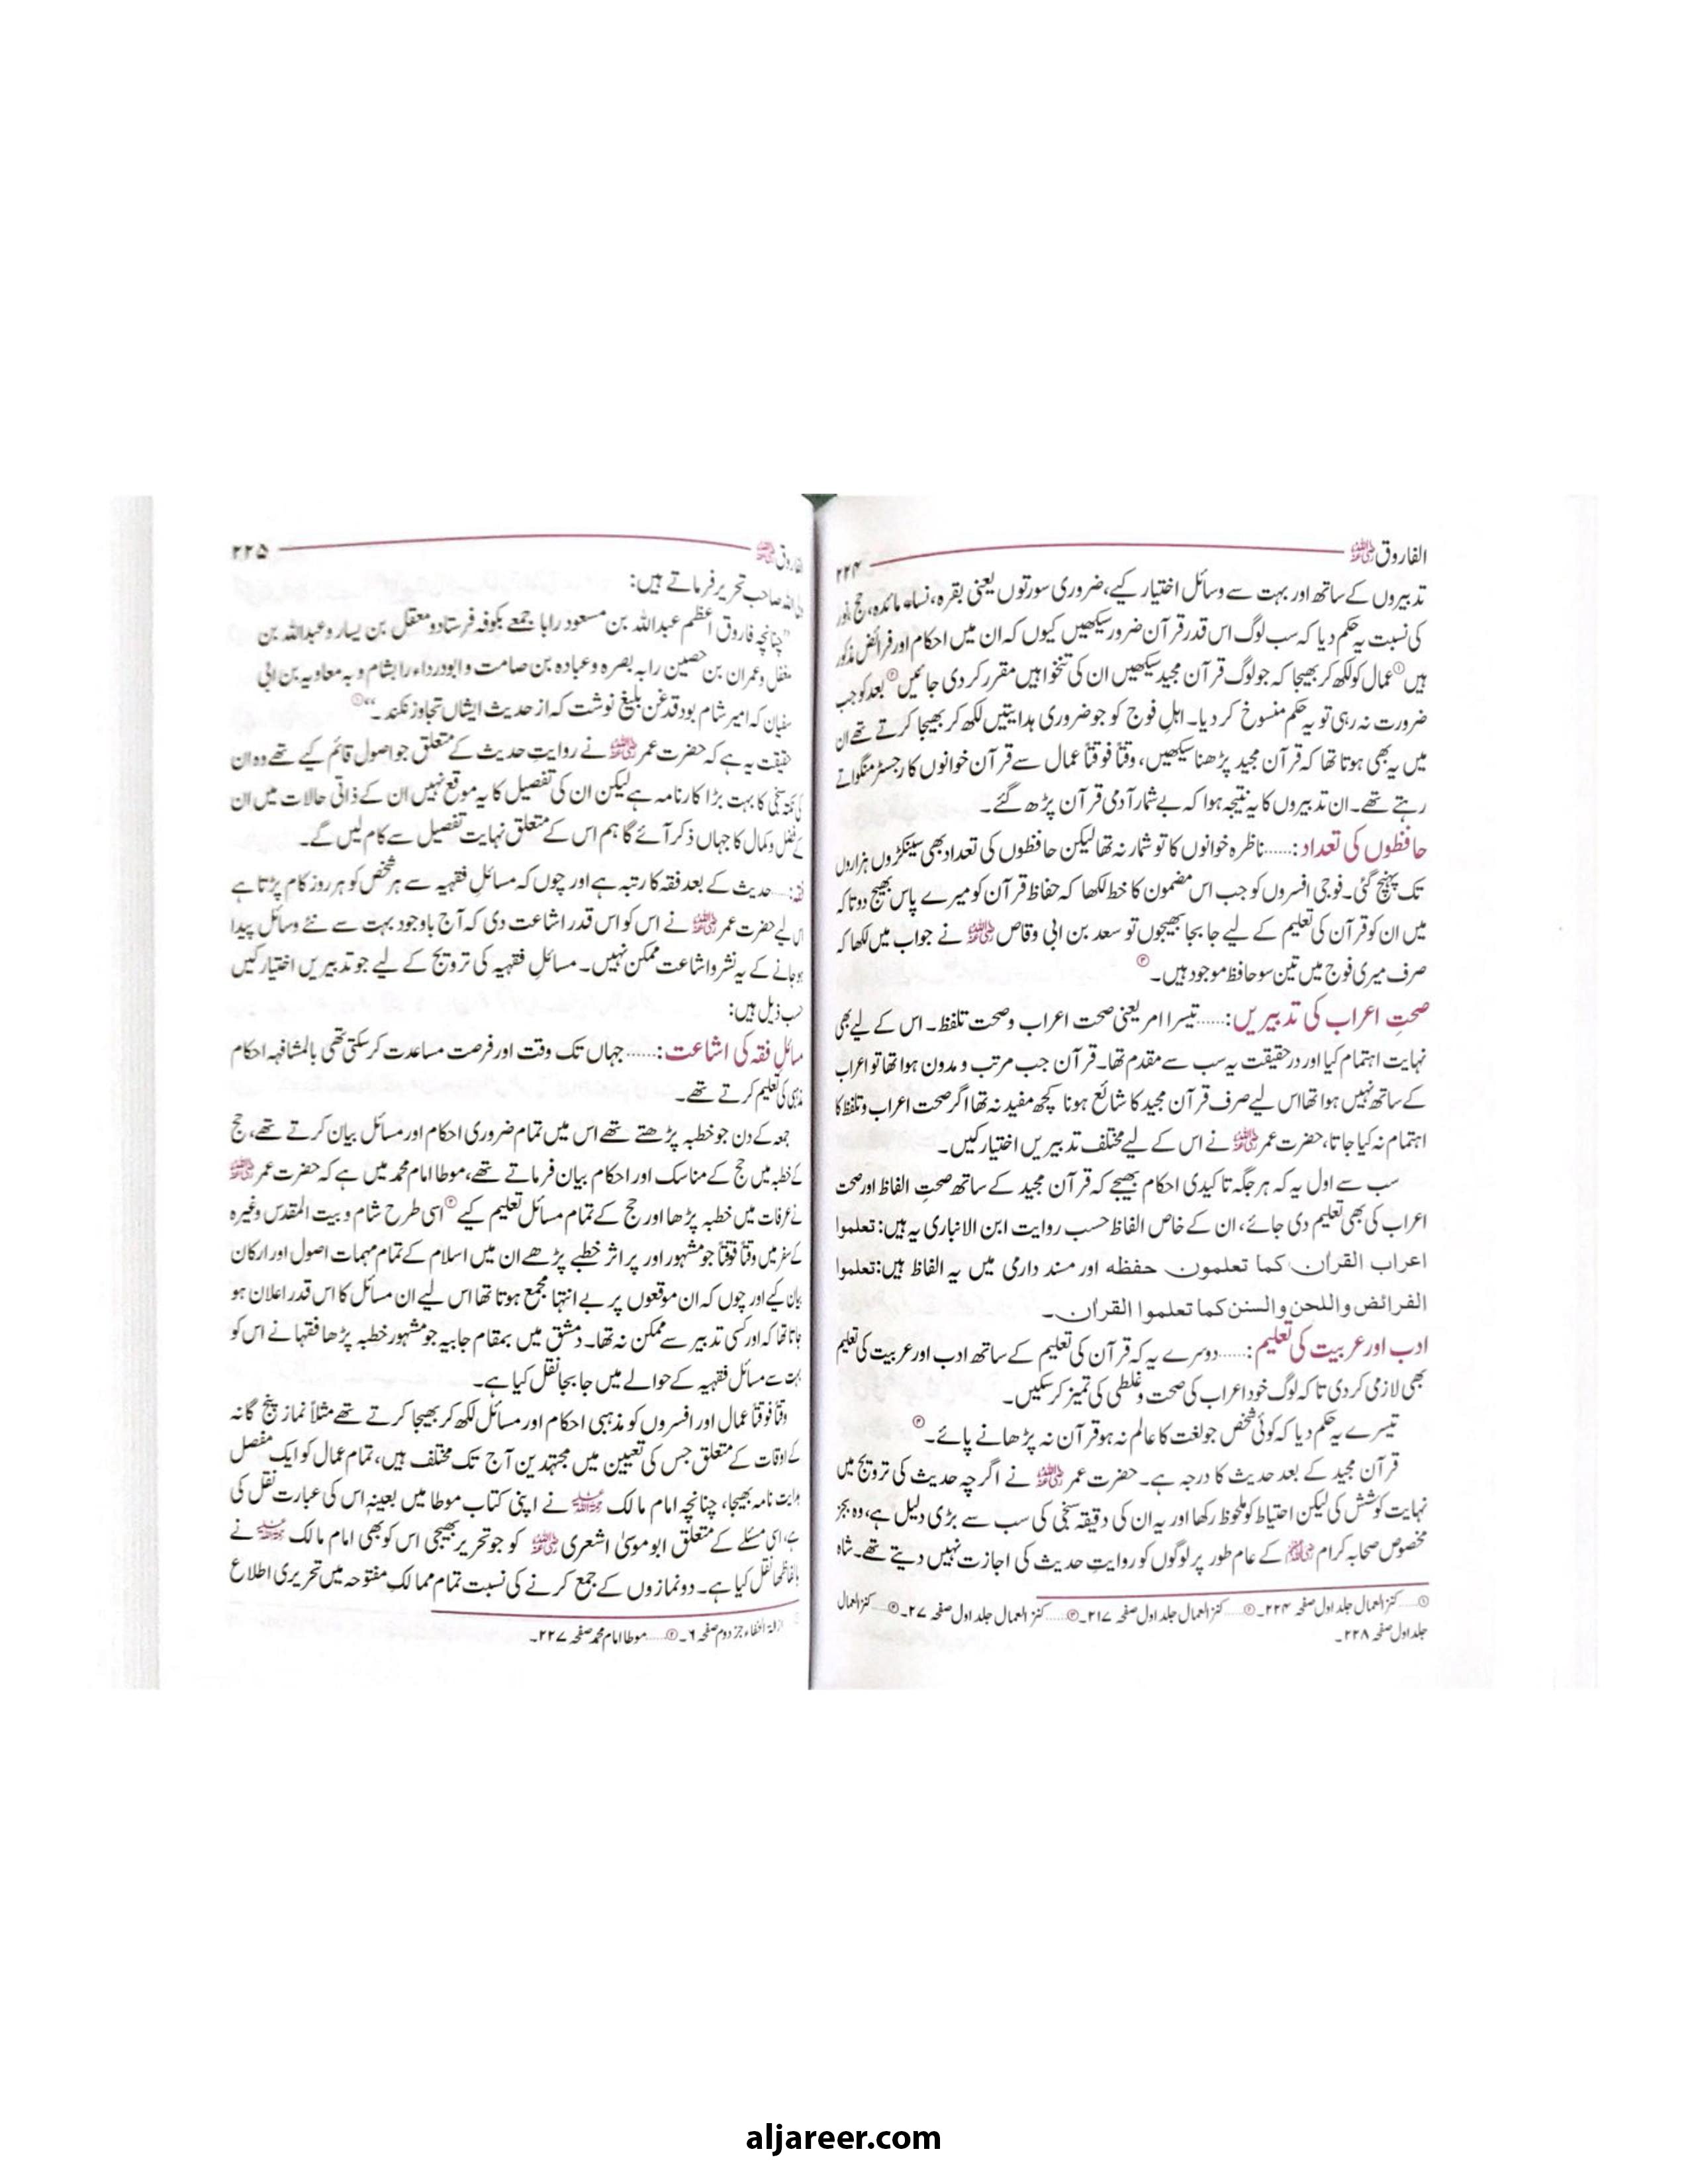 الفاروق رضی اللہ عنہ ۲۲۴
تدبیروں کے ساتھ اور بہت سے وسائل اختیار کیے، ضروری سورتوں یعنی بقرہ، نساء، مائدہ، حج، نور
کی نسبت یہ حکم دیا کہ سب لوگ اس قدر قرآن ضرور سیکھیں کیوں کہ ان میں احکام اور فرائض مذکور
ہیں① عمال کو لکھ کر بھیجا کہ جو لوگ قرآن مجید سیکھیں ان کی تنخواہیں مقرر کر دی جائیں② بعد کو جب
ضرورت نہ رہی تو یہ حکم منسوخ کر دیا۔ اہلِ فوج کو جو ضروری ہدایتیں لکھ کر بھیجا کرتے تھے ان
میں یہ بھی ہوتا تھا کہ قرآن مجید پڑھنا سیکھیں، وقتاً فوقتاً عمال سے قرآن خوانوں کا رجسٹر منگواتے
رہتے تھے۔ ان تدبیروں کا یہ نتیجہ ہوا کہ بے شمار آدمی قرآن پڑھ گئے۔
حافظوں کی تعداد:......ناظرہ خوانوں کا تو شمار نہ تھا لیکن حافظوں کی تعداد بھی سینکڑوں ہزاروں
تک پہنچ گئی۔ فوجی افسروں کو جب اس مضمون کا خط لکھا کہ حفاظ قرآن کو میرے پاس بھیج دو تا کہ
میں ان کو قرآن کی تعلیم کے لیے جا بجا بھیجوں تو سعد بن ابی وقاص رضی اللہ عنہ نے جواب میں لکھا کہ
صرف میری فوج میں تین سو حافظ موجود ہیں۔③
صحتِ اعراب کی تدبیریں:......تیسرا امر یعنی صحت اعراب و صحت تلفظ۔ اس کے لیے بھی
نہایت اہتمام کیا اور درحقیقت یہ سب سے مقدم تھا۔ قرآن جب مرتب و مدون ہوا تھا تو اعراب
کے ساتھ نہیں ہوا تھا اس لیے صرف قرآن مجید کا شائع ہونا کچھ مفید نہ تھا اگر صحت اعراب و تلفظ کا
اہتمام نہ کیا جاتا، حضرت عمر رضی اللہ عنہ نے اس کے لیے مختلف تدبیریں اختیار کیں۔
سب سے اول یہ کہ ہر جگہ تاکیدی احکام بھیجے کہ قرآن مجید کے ساتھ صحتِ الفاظ اور صحت
اعراب کی بھی تعلیم دی جائے، ان کے خاص الفاظ حسب روایت ابن الانباری یہ ہیں: تعلموا
اعراب القرآن کما تعلمون حفظه اور مسند دارمی میں یہ الفاظ ہیں: تعلموا
الفرائض واللحن والسنن کما تعلموا القرآن۔
ادب اور عربیت کی تعلیم:......دوسرے یہ کہ قرآن کی تعلیم کے ساتھ ادب اور عربیت کی تعلیم
بھی لازمی کر دی تا کہ لوگ خود اعراب کی صحت و غلطی کی تمیز کر سکیں۔
تیسرے یہ حکم دیا کہ کوئی شخص جو لغت کا عالم نہ ہو قرآن نہ پڑھانے پائے۔④
قرآن مجید کے بعد حدیث کا درجہ ہے۔ حضرت عمر رضی اللہ عنہ نے اگرچہ حدیث کی ترویج میں
نہایت کوشش کی لیکن احتیاط کو ملحوظ رکھا اور یہ ان کی دقیقہ سنجی کی سب سے بڑی دلیل ہے، وہ بجز
مخصوص صحابہ کرام کے عام طور پر لوگوں کو روایتِ حدیث کی اجازت نہیں دیتے تھے۔ شاہ
①.....کنز العمال جلد اول صفحہ ۲۲۴۔ ②.....کنز العمال جلد اول صفحہ ۲۱۷۔ ③.....کنز العمال جلد اول صفحہ ۲۷۔ ④.....کنز العمال
جلد اول صفحہ ۲۲۸۔
الفاروق ۲۲۵
ولی اللہ صاحب تحریر فرماتے ہیں:
”چنانچہ فاروق اعظم عبداللہ بن مسعود را با جمعے بکوفہ فرستاد و معقل بن یسار و عبداللہ بن
مغفل و عمران بن حصین را بہ بصرہ و عبادہ بن صامت و ابودرداء را بشام و بہ معاویہ بن ابی
سفیان کہ امیر شام بود قدغن بلیغ نوشت کہ از حدیث ایشاں تجاوز نکند۔“①
حقیقت یہ ہے کہ حضرت عمر رضی اللہ عنہ نے روایتِ حدیث کے متعلق جو اصول قائم کیے تھے وہ ان
کی نکتہ سنجی کا بہت بڑا کارنامہ ہے لیکن ان کی تفصیل کا یہ موقع نہیں ان کے ذاتی حالات میں ان
کے فضل و کمال کا جہاں ذکر آئے گا ہم اس کے متعلق نہایت تفصیل سے کام لیں گے۔
فقہ:......حدیث کے بعد فقہ کا رتبہ ہے اور چوں کہ مسائلِ فقہیہ سے ہر شخص کو ہر روز کام پڑتا ہے
اس لیے حضرت عمر رضی اللہ عنہ نے اس کو اس قدر اشاعت دی کہ آج باوجود بہت سے نئے وسائل پیدا
ہو جانے کے یہ نشر و اشاعت ممکن نہیں۔ مسائلِ فقہیہ کی ترویج کے لیے جو تدبیریں اختیار کیں
حسب ذیل ہیں:
مسائلِ فقہ کی اشاعت:......جہاں تک وقت اور فرصت مساعدت کر سکتی تھی بالمشافہہ احکام
مذہبی کی تعلیم کرتے تھے۔
جمعہ کے دن جو خطبہ پڑھتے تھے اس میں تمام ضروری احکام اور مسائل بیان کرتے تھے، حج
کے خطبہ میں حج کے مناسک اور احکام بیان فرماتے تھے، موطا امام محمد میں ہے کہ حضرت عمر رضی اللہ عنہ
نے عرفات میں خطبہ پڑھا اور حج کے تمام مسائل تعلیم کیے② اسی طرح شام و بیت المقدس وغیرہ
کے سفر میں وقتاً فوقتاً جو مشہور اور پر اثر خطبے پڑھے ان میں اسلام کے تمام مہمات اصول اور ارکان
بیان کیے اور چوں کہ ان موقعوں پر بے انتہا مجمع ہوتا تھا اس لیے ان مسائل کا اس قدر اعلان ہو
جاتا تھا کہ اور کسی تدبیر سے ممکن نہ تھا۔ دمشق میں بمقام جابیہ جو مشہور خطبہ پڑھا فقہا نے اس کو
بہت سے مسائل فقہیہ کے حوالے میں جا بجا نقل کیا ہے۔
وقتاً فوقتاً عمال اور افسروں کو مذہبی احکام اور مسائل لکھ کر بھیجا کرتے تھے مثلاً نماز پنج گانہ
کے اوقات کے متعلق جس کی تعیین میں مجتہدین آج تک مختلف ہیں، تمام عمال کو ایک مفصل
ہدایت نامہ بھیجا، چنانچہ امام مالک رحمہ اللہ نے اپنی کتاب موطا میں بعینہٖ اس کی عبارت نقل کی
ہے، اسی مسئلے کے متعلق ابو موسیٰ اشعری رضی اللہ عنہ کو جو تحریر بھیجی اس کو بھی امام مالک رحمہ اللہ نے
بالفاظہا نقل کیا ہے۔ دو نمازوں کے جمع کرنے کی نسبت تمام ممالکِ مفتوحہ میں تحریری اطلاع
ازالۃ الخفاء جز دوم صفحہ ۶۔ ②.....موطا امام محمد صفحہ ۲۲۷۔
aljareer.com